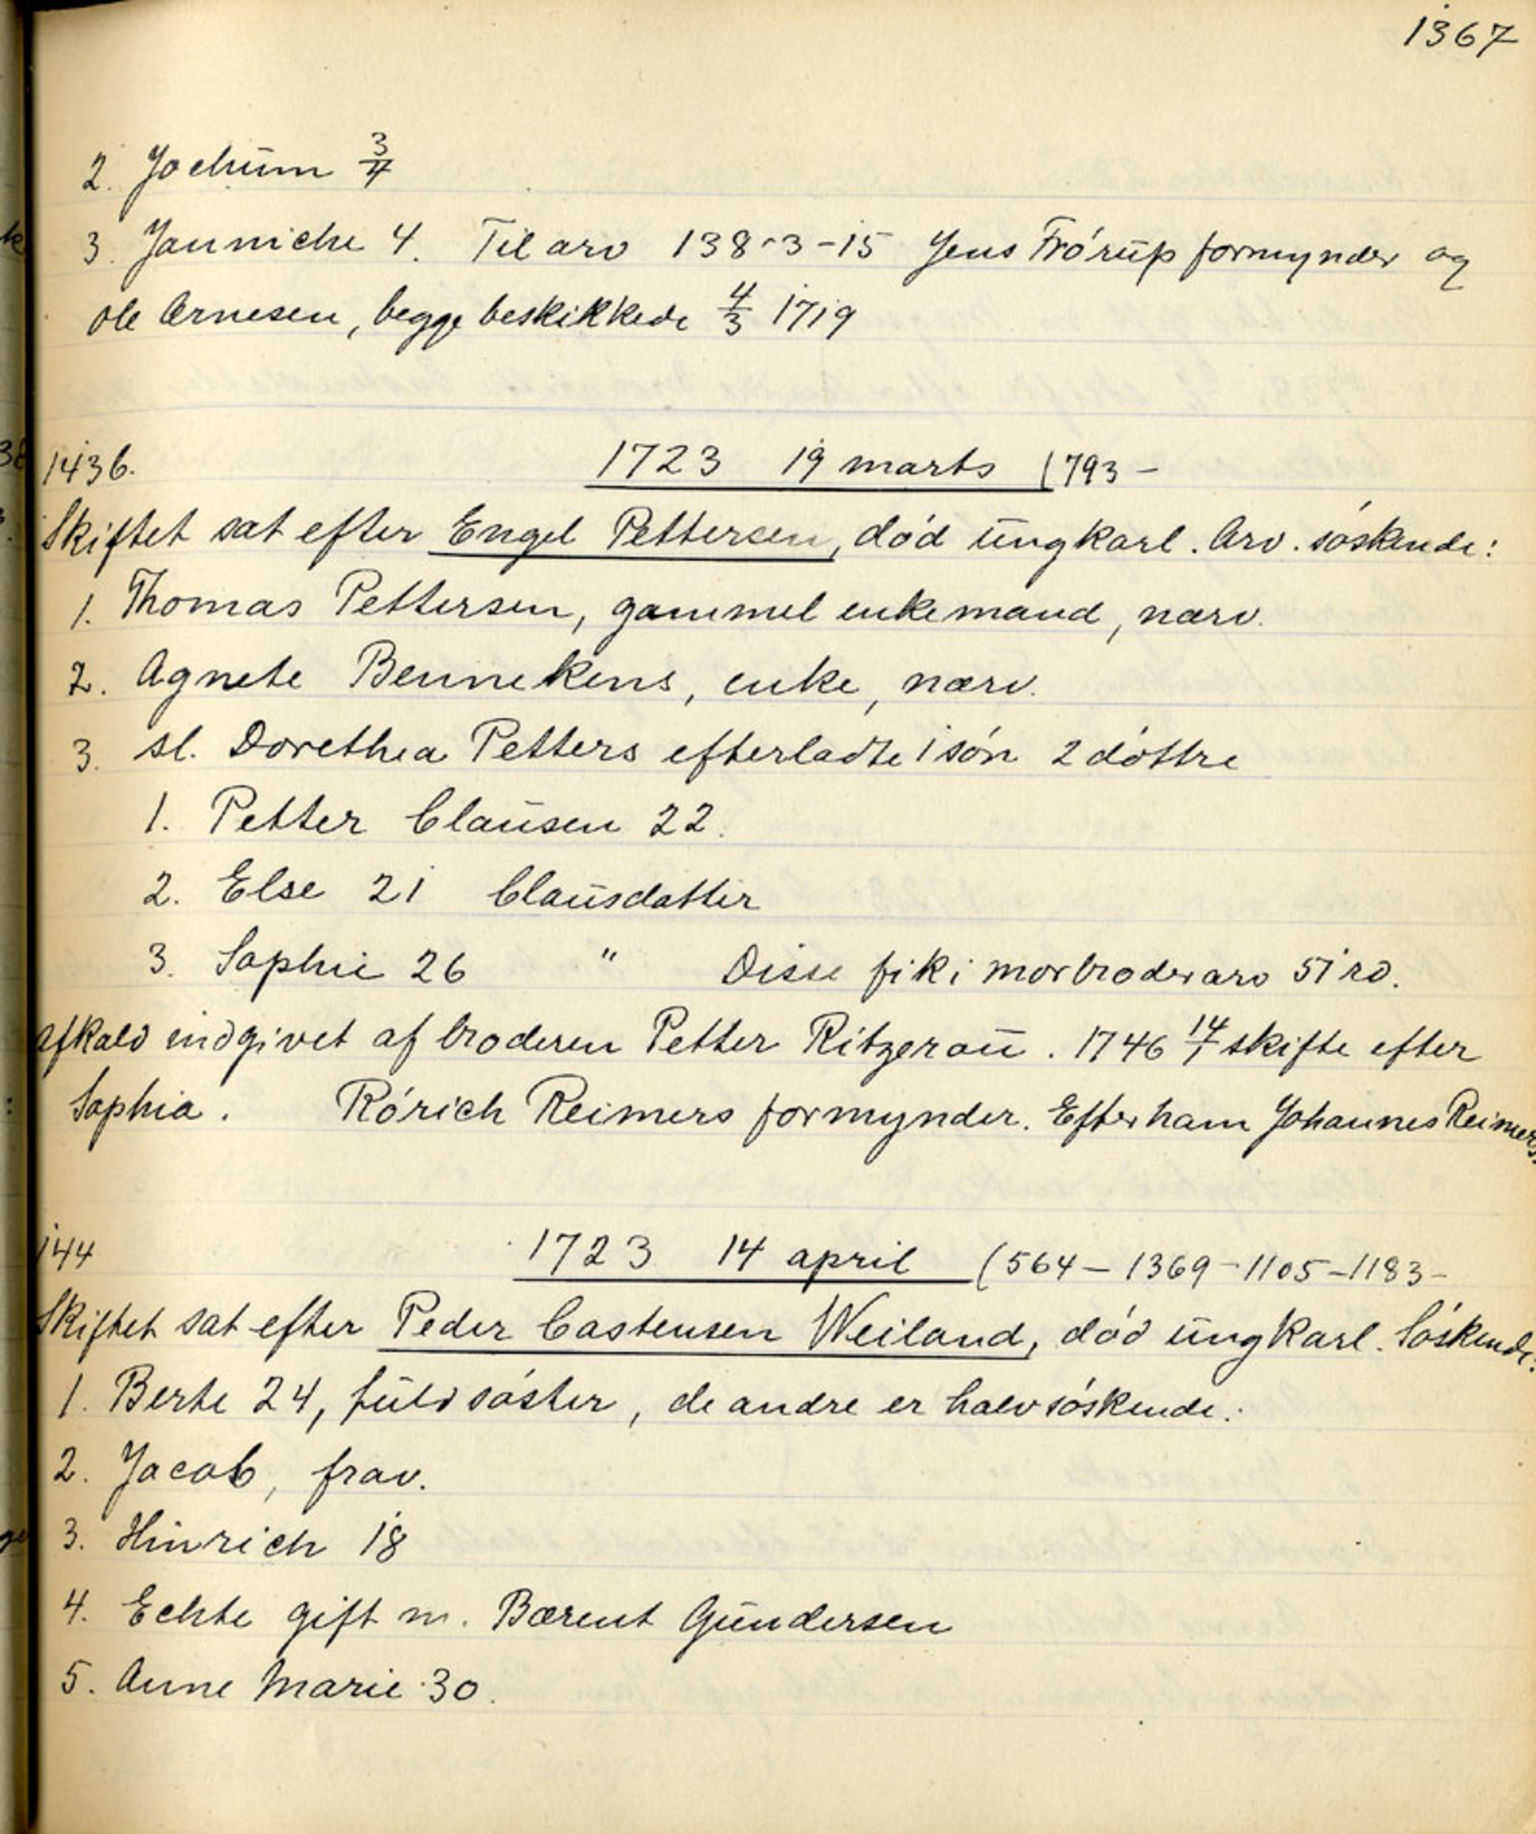 1367
2. Jochum 3/4
3. Janniche 4. Til arv 138-3-15 Jens Frórup formynder og
Ole Arnesen, begge beskikkede 4/3 1719
1436. 1723 19 marts (793-
Skiftet sat efter Engel Pettersen, død ungkarl. Arv. søskende:
1. Thomas Pettersen, gammel enkemand, nærv.
2. Agnete Bennekens, enke, nærv.
3. sl. Dorethea Petters efterladte 1 søn 2 døttre
1. Petter Clausen 22.
2. Else 21 Clausdatter
3. Sophie 26 " Disse fik i morbroderarv 51 rd.
Afkald indgivet af broderen Petter Ritzerau. 1746 14/1 skifte efter
Sophia. Rórich Reimers formynder. Efter ham Johannes Reimers.
144 1723 14 april (564-1369-1105-1183-
Skiftet sat efter Peder Castensen Weiland, død ungkarl. Søskende:
1. Berte 24, fuld søster, de andre er halvsøskende:
2. Jacob, frav.
3. Hinrich 18
4. Echte gift m. Bærent Gundersen
5. Anne Marie 30.